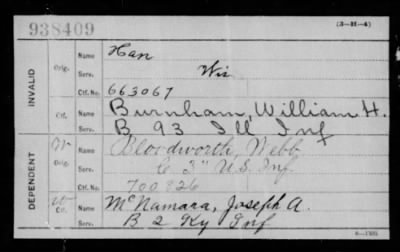 938409
(3-H-4)
INVALID
Orig. Name Han
Serv. Wis
Ctf. No. 663067
Ctf. Name Burnham, William H.
Serv. B 93 Ill Inf
DEPENDENT
W Orig. Name Bloodworth, Webb
Serv. C 3" U.S. Inf
Ctf. No. 700826
W Ctf. Name McNamara, Joseph A.
Serv. B 2 Ky Inf